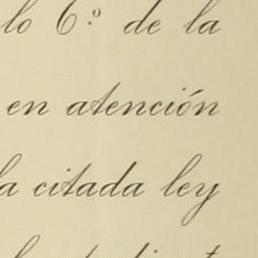 lo 6.º de la
en atención
la citada ley